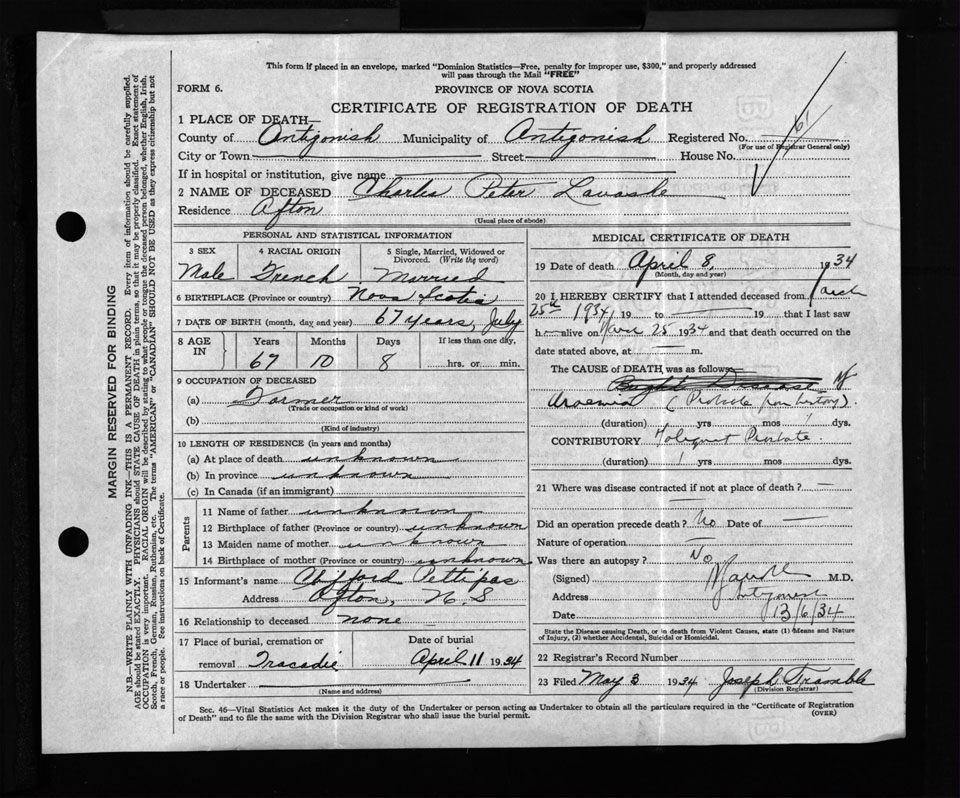 This form if placed in an envelope, marked "Dominion Statistics—Free, penalty for improper use, $300," and properly addressed
will pass through the Mail "FREE"
FORM 6.
PROVINCE OF NOVA SCOTIA
CERTIFICATE OF REGISTRATION OF DEATH
1 PLACE OF DEATH—
County of Antigonish Municipality of Antigonish Registered No.
(For use of Registrar General only)
City or Town Street House No.
If in hospital or institution, give name
2 NAME OF DECEASED Charles Peter
Residence Afton
(Usual place of abode)
PERSONAL AND STATISTICAL INFORMATION
3 SEX 4 RACIAL ORIGIN 5 Single, Married, Widowed or
Divorced. (Write the word)
Male French Married
6 BIRTHPLACE (Province or country) Nova Scotia
7 DATE OF BIRTH (month, day and year) 67 years, July
8 AGE IN Years Months Days If less than one day,
67 10 8 hrs. or min.
9 OCCUPATION OF DECEASED
(a) Farmer
(Trade or occupation or kind of work)
(b)
(Kind of industry)
10 LENGTH OF RESIDENCE (in years and months)
(a) At place of death unknown
(b) In province unknown
(c) In Canada (if an immigrant)
Parents
11 Name of father unknown
12 Birthplace of father (Province or country) unknown
13 Maiden name of mother unknown
14 Birthplace of mother (Province or country) unknown
15 Informant's name Clifford Pettipas
Address Afton, N.S
16 Relationship to deceased none
17 Place of burial, cremation or Date of burial
removal Tracadie April 11 1934
18 Undertaker
(Name and address)
MEDICAL CERTIFICATE OF DEATH
19 Date of death April 8, 1934
(Month, day and year)
20 I HEREBY CERTIFY that I attended deceased from March
25th 1934 19 to 19 that I last saw
h alive on 25 1934 and that death occurred on
date stated above, at m.
The CAUSE of DEATH was as follows:
Bright's Disease
Uraemia (Probable from history)
(duration) yrs mos 1 dys.
CONTRIBUTORY Prostate.
(duration) 1 yrs mos dys.
21 Where was disease contracted if not at place of death? —
Did an operation precede death? No Date of —
Nature of operation —
Was there an autopsy? No
(Signed) M.D.
Address
Date 13/6/34
State the Disease causing Death, or in death from Violent Causes, state (1) Means and Nature
of Injury, (2) whether Accidental, Suicidal or Homicidal.
22 Registrar's Record Number
23 Filed May 3 1934 Joseph Tramble
(Division Registrar)
Sec. 46—Vital Statistics Act makes it the duty of the Undertaker or person acting as Undertaker to obtain all the particulars required in the "Certificate of Registration
of Death" and to file the same with the Division Registrar who shall issue the burial permit.
(OVER)
MARGIN RESERVED FOR BINDING
N.B.—WRITE PLAINLY WITH UNFADING INK—THIS IS A PERMANENT RECORD. Every item of information should be carefully supplied.
AGE should be stated EXACTLY. PHYSICIANS should STATE CAUSE OF DEATH in plain terms, so that it may be properly classified. Exact statement of
OCCUPATION is very important. RACIAL ORIGIN will be described by stating to what people or tongue the deceased person belonged, whether English, Irish,
Scotch, French, German, Russian, Ruthenian, etc. The terms "AMERICAN" or "CANADIAN" SHOULD NOT BE USED as they express citizenship but not
a race or people. See instructions on back of Certificate.